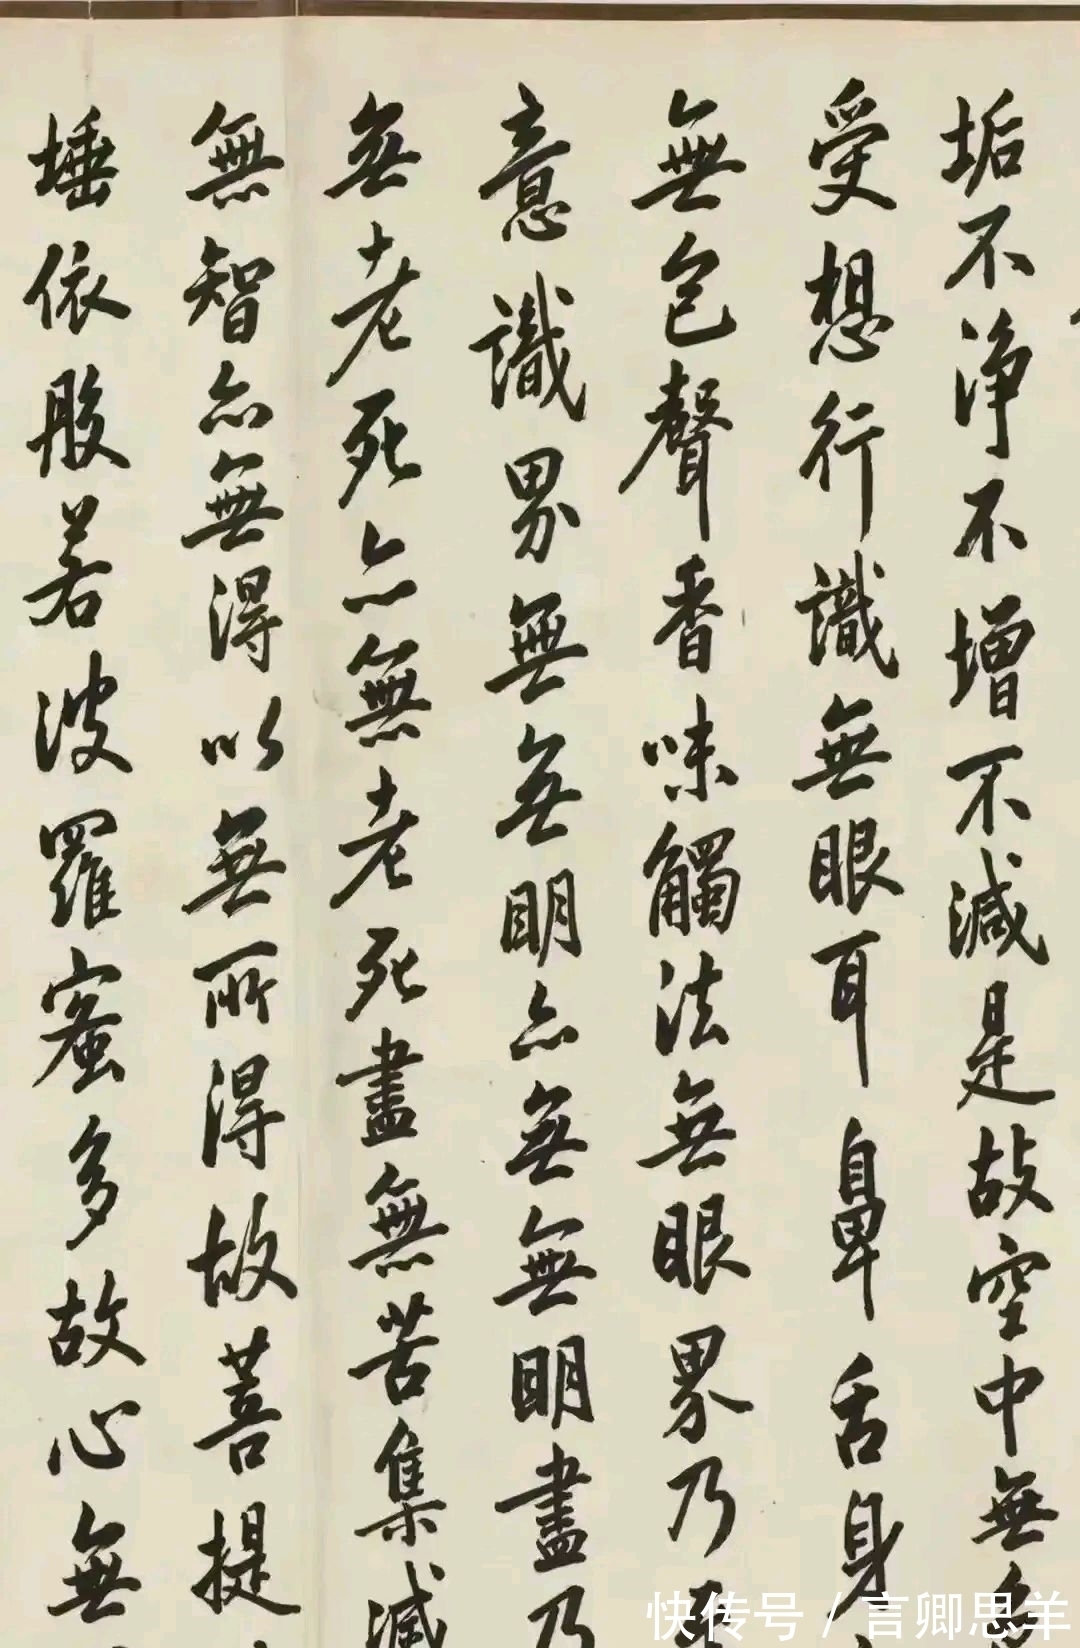 垢不淨不增不減是故空中無色
受想行識無眼耳鼻舌身
無色聲香味觸法無眼界乃至
意識界無無明亦無無明盡乃
無老死亦無老死盡無苦集滅
無智亦無得以無所得故菩提
埵依般若波羅蜜多故心無
快传号 / 言卿思羊